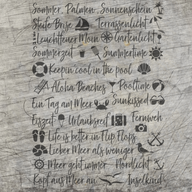 Sommer, Palmen, Sonnenschein
Steife Brise Terrassenlicht
Leuchtener Moin Gartenlicht
Sommerzeit Summertime
Keepin cool in the pool
Aloha Beaches Pooltime
Ein Tag am Meer Sunkissed
Eiszeit Urlaubszeit Fernweh
Life is better in Flip Flops
Lieber Meer als weniger
Meer geht immer Nordlicht
Kopf aus Meer an Inselkind